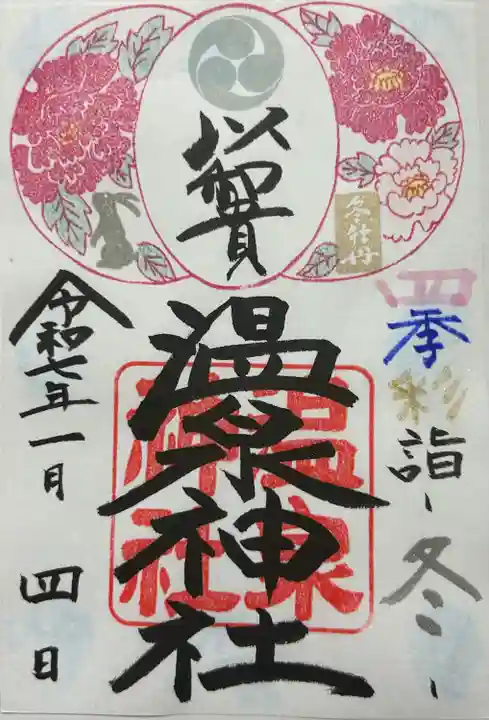 四季彩詣-冬-
冬牡丹
温泉神社
温泉
神社
令和七年一月四日